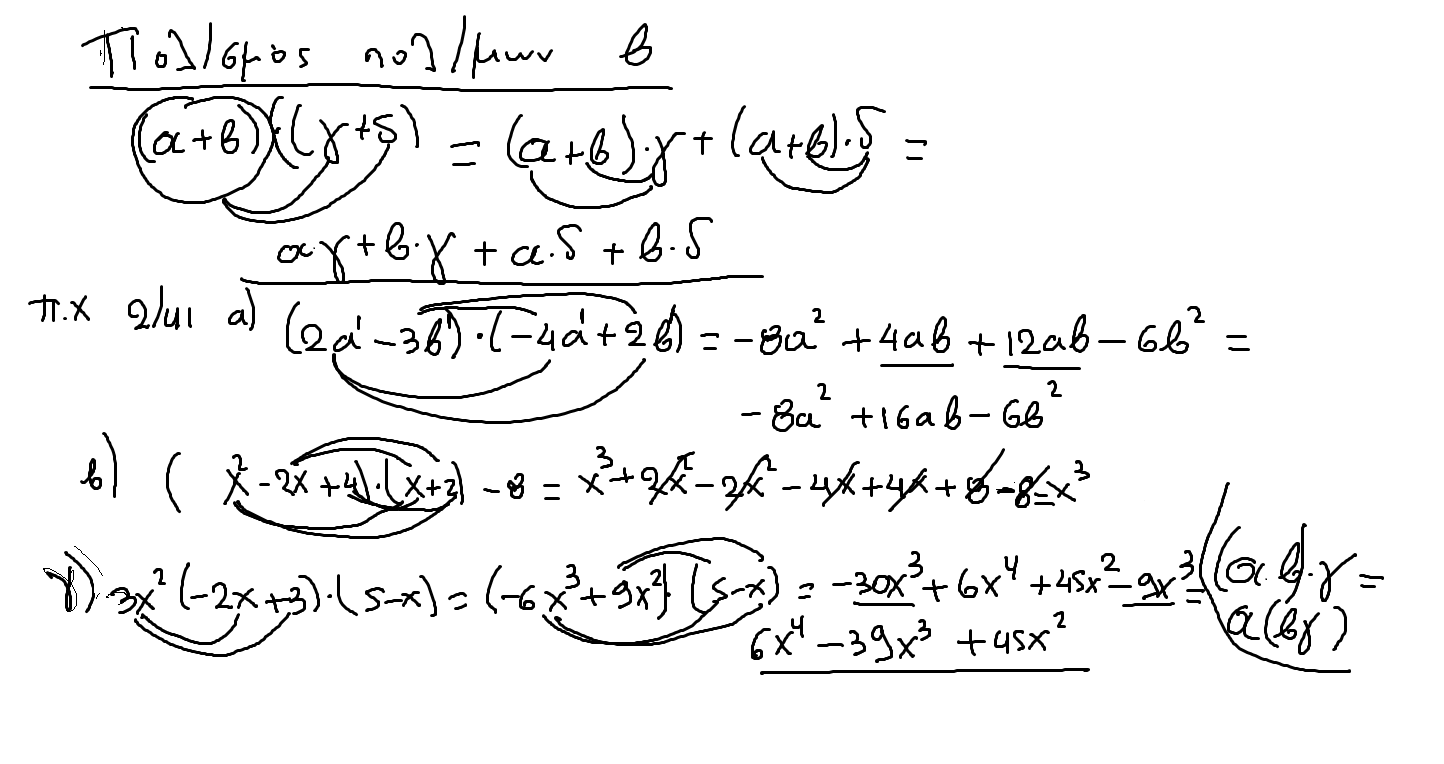 Πολ/σμός πολ/μων β
(α+β)·(γ+δ) = (α+β)·γ + (α+β)·δ =
α·γ+β·γ + α·δ + β·δ
π.χ 2/41 α) (2α-3β)·(-4α+2β) = -8α² + 4αβ + 12αβ - 6β² =
-8α² +16αβ - 6β²
β) (x²-2x+4)·(x+2) - 8 = x³+2x²-2x²-4x+4x+8-8=x³
γ) 3x²(-2x+3)·(5-x) = (-6x³+9x²)(5-x) = -30x³+6x⁴+45x²-9x³= (α·β)·γ =
6x⁴-39x³+45x² α(βγ)